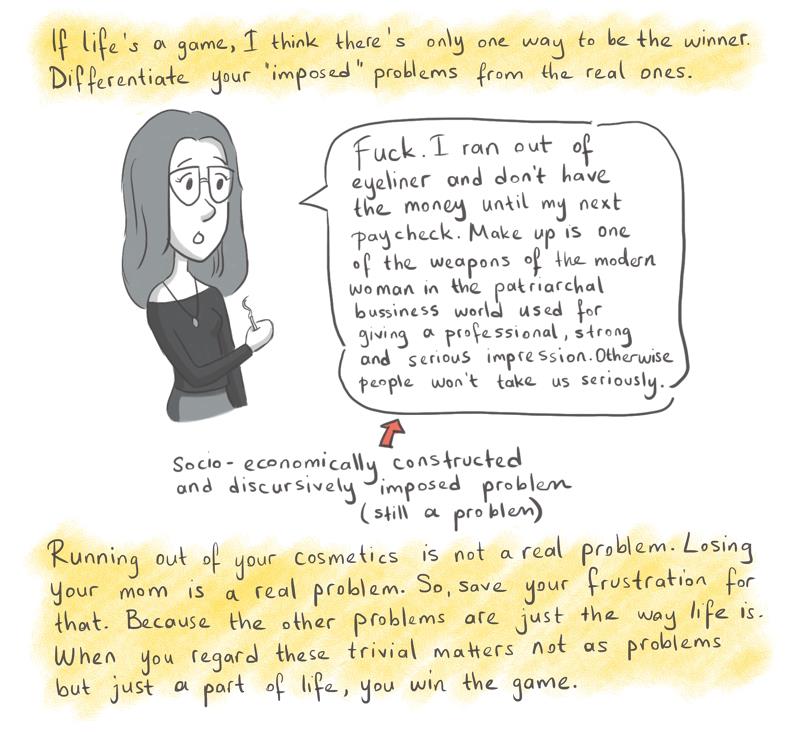 If life's a game, I think there's only one way to be the winner.
Differentiate your "imposed" problems from the real ones.
Fuck. I ran out of
eyeliner and don't have
the money until my next
paycheck. Make up is one
of the weapons of the modern
woman in the patriarchal
bussiness world used for
giving a professional, strong
and serious impression. Otherwise
people won't take us seriously.
Socio-economically constructed
and discursively imposed problem
(still a problem)
Running out of your cosmetics is not a real problem. Losing
your mom is a real problem. So, save your frustration for
that. Because the other problems are just the way life is.
When you regard these trivial matters not as problems
but just a part of life, you win the game.